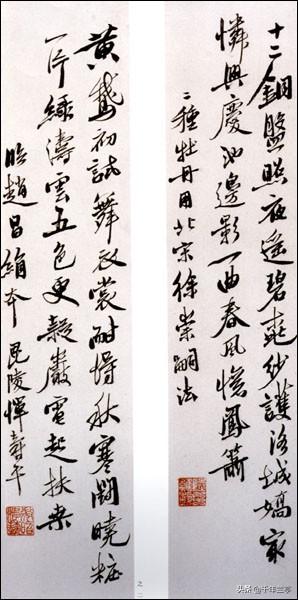 十二銅盤照夜遙碧桃紗護洛城嬌最
憐興慶池邊影一曲春風憶鳳簫
二種牡丹用北宋徐崇嗣法
黃鵞初試舞衣裳耐得秋寒鬪曉粧
一片綠濤雲五色更疑巖電起扶桑
臨趙昌絹本毘陵惲壽平
之二
头条@千年兰亭